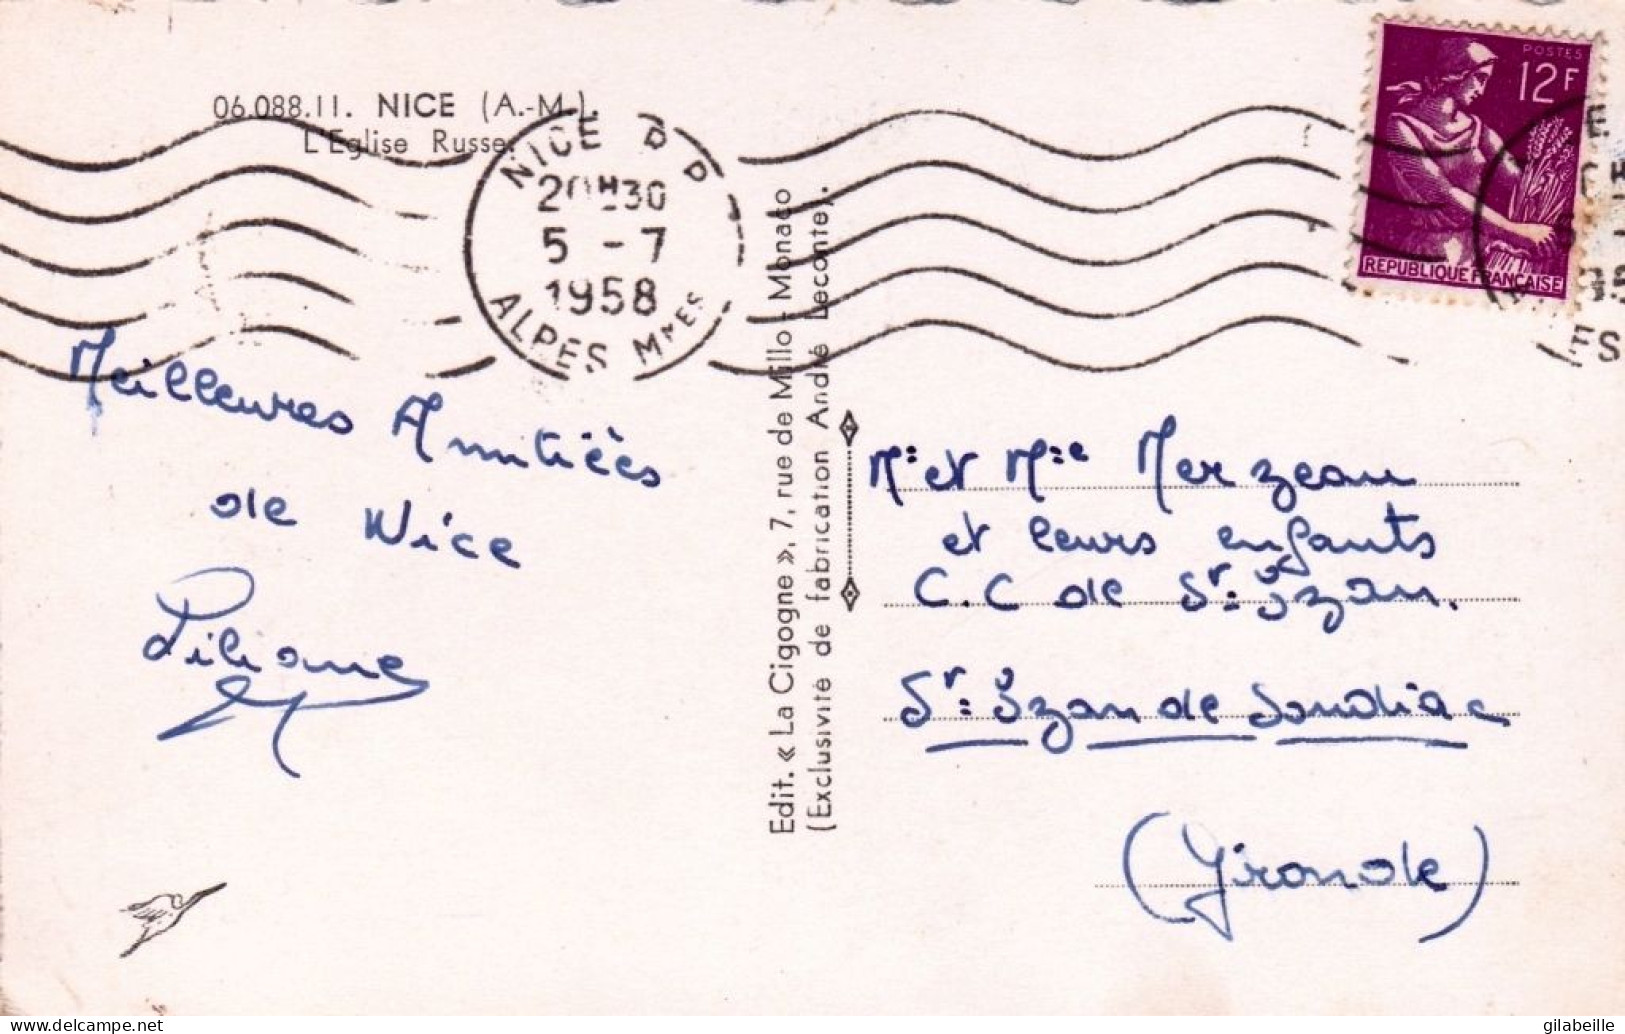 06.088.11. NICE (A.-M.).
L'Eglise Russe.
NICE P P
20H30
5 - 7
1958
ALPES MMES
POSTES
12F
REPUBLIQUE FRANÇAISE
Meilleures Amitiéés
de Nice
Liliane
Edit. « La Cigogne », 7, rue de Millo - Monaco
(Exclusivité de fabrication André Leconte).
Mr et Mme Merzeau
et leurs enfants
C.C de St. Yzan.
St. Yzan de Soudiac
(Gironde)
www.delcampe.net
gilabeille